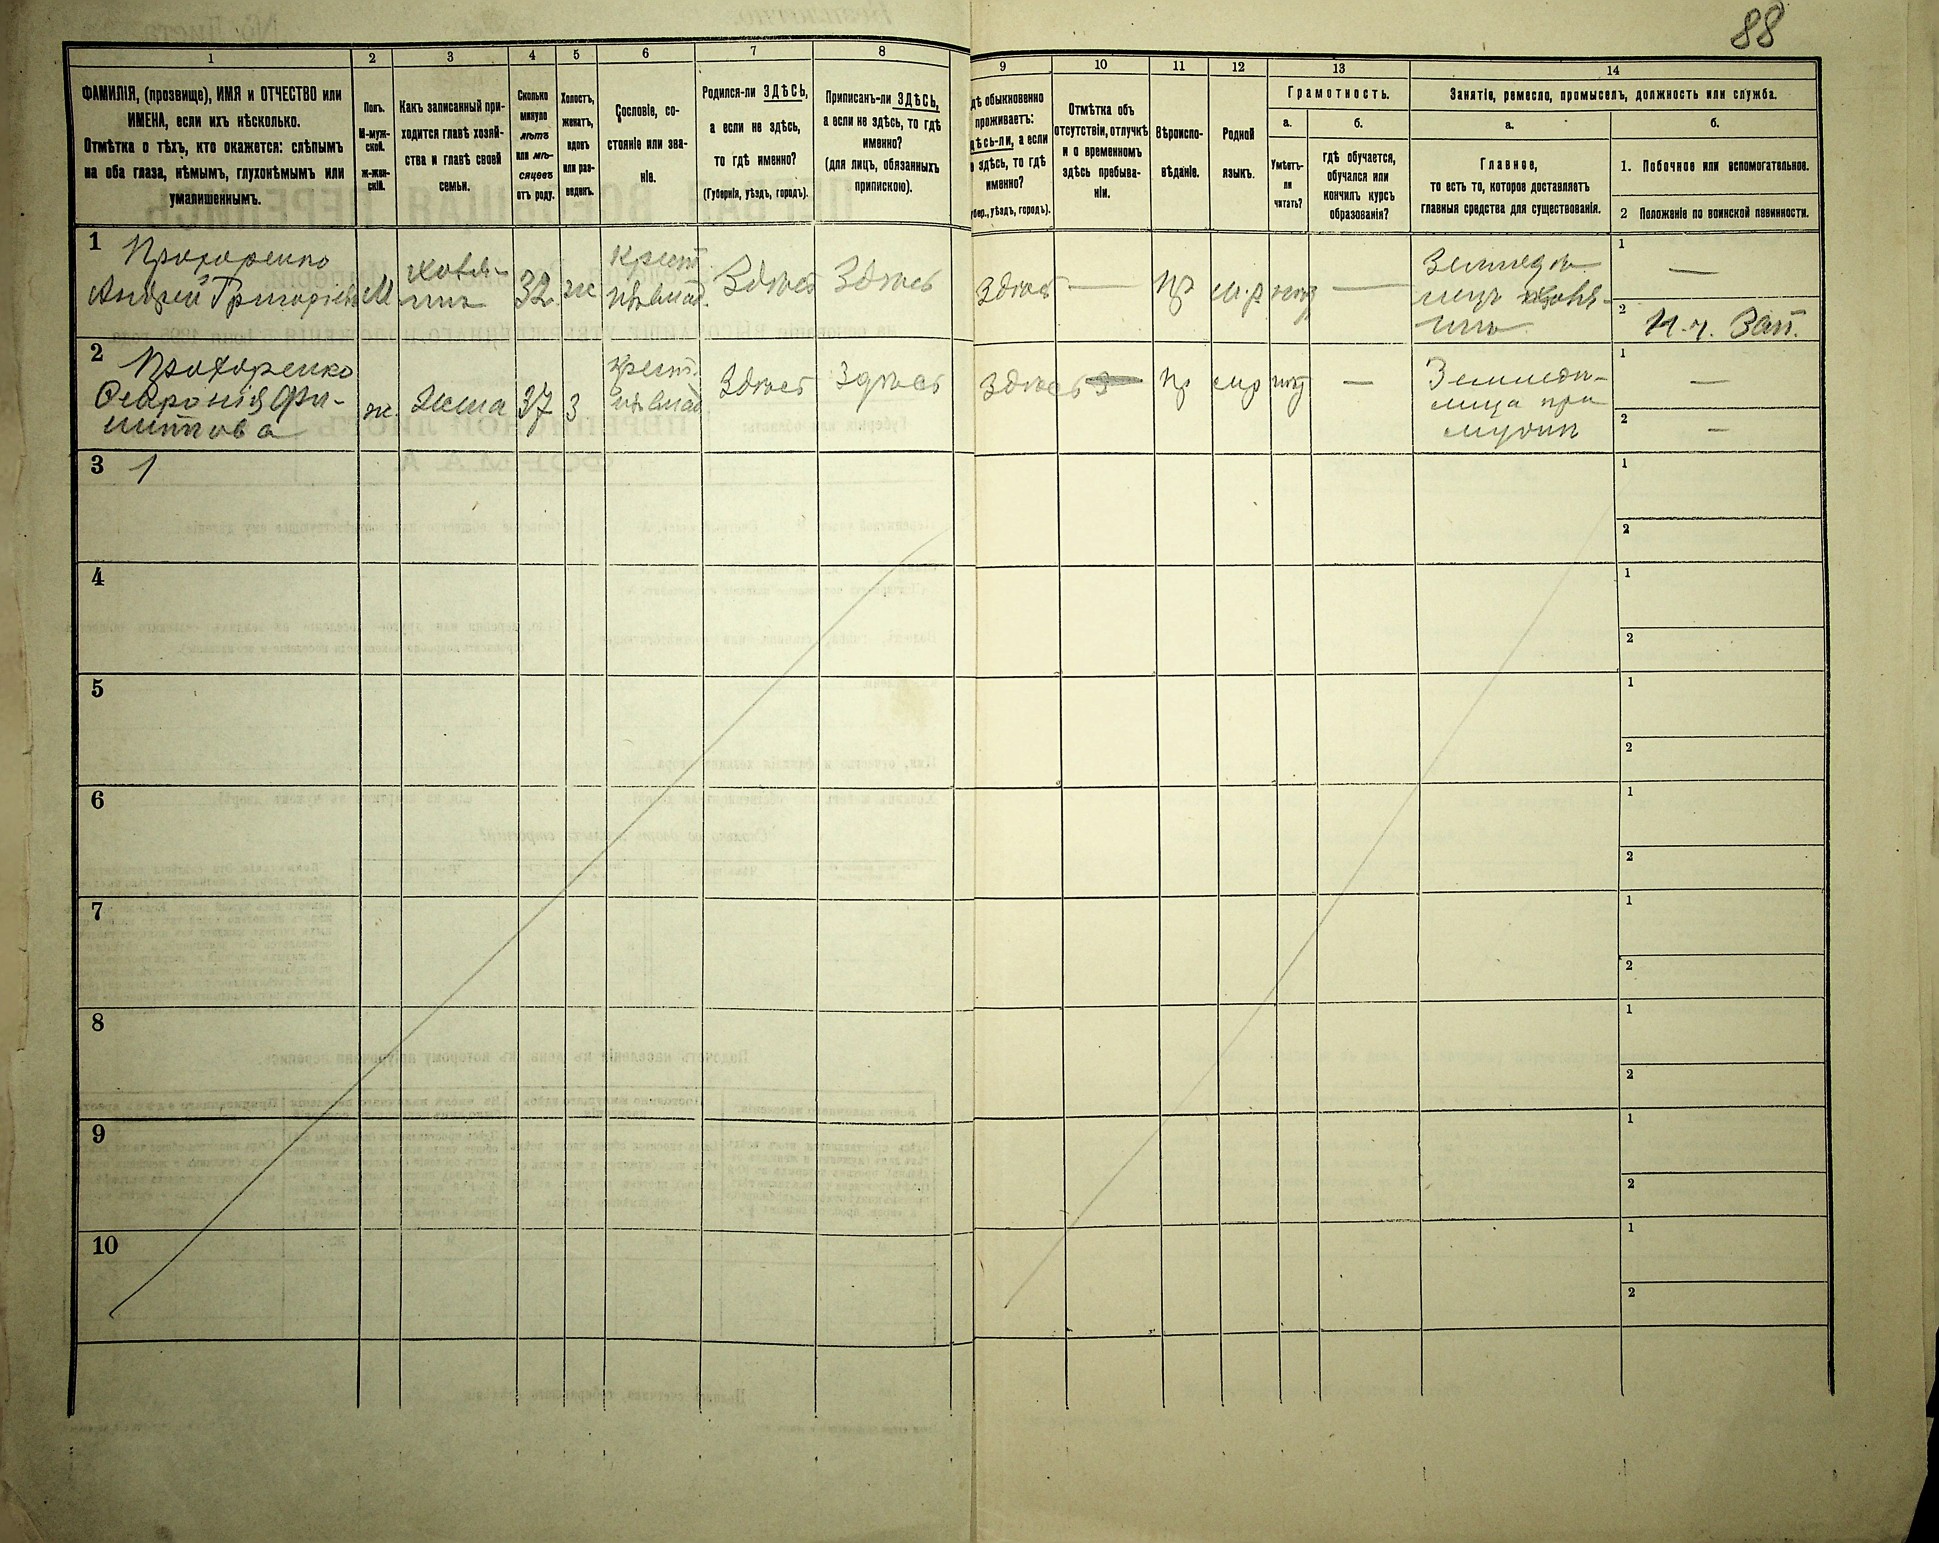 88
1
2
3
4
5
6
7
8
9
10
11
12
13
14
ФАМИЛІЯ, (прозвище), ИМЯ и ОТЧЕСТВО или
ИМЕНА, если ихъ нѣсколько.
Отмѣтка о тѣхъ, кто окажется: слѣпымъ
на оба глаза, нѣмымъ, глухонѣмымъ или
умалишеннымъ.
Полъ.
М-муж-
ской.
ж-жен-
скій.
Какъ записанный при-
ходится главѣ хозяй-
ства и главѣ своей
семьи.
Сколько
минуло
лѣтъ
или мѣ-
сяцевъ
отъ роду.
Холостъ,
женатъ,
вдовъ
или раз-
веденъ.
Сословіе, со-
стояніе или зва-
ніе.
Родился-ли ЗДѢСЬ,
а если не здѣсь,
то гдѣ именно?
(Губернія, уѣздъ, городъ).
Приписанъ-ли ЗДѢСЬ,
а если не здѣсь, то гдѣ
именно?
(для лицъ, обязанныхъ
припискою).
дѣ обыкновенно
проживаетъ:
дѣсь-ли, а если
здѣсь, то гдѣ
именно?
бер., уѣздъ, городъ).
Отмѣтка объ
отсутствіи, отлучкѣ
и о временномъ
здѣсь пребыва-
ніи.
Вѣроиспо-
вѣданіе.
Родной
языкъ.
Грамотность.
а.
Умѣетъ-
ли
читать?
б.
гдѣ обучается,
обучался или
кончилъ курсъ
образованія?
Занятія, ремесло, промыселъ, должность или служба.
а.
Главное,
то есть то, которое доставляетъ
главныя средства для существованія.
б.
1. Побочное или вспомогательное.
2 Положеніе по воинской повинности.
1
Прохоренко
Андрей Григорьевъ
М
хозя-
инъ
32
ж
крест
Здѣсь
Здѣсь
Здѣсь
—
пр
м.р
—
Землед
инъ
1
—
2
Н.ч. Зап.
2
Прохоренко
Февронія Фи-
липпова
ж.
Жена
37
з
крест.
Здѣсь
Здѣсь
Здѣсь
пр
мр
—
Земледѣ-
лица при
мужѣ
1
—
2
—
3
1
1
2
4
1
2
5
1
2
6
1
2
7
1
2
8
1
2
9
1
2
10
1
2